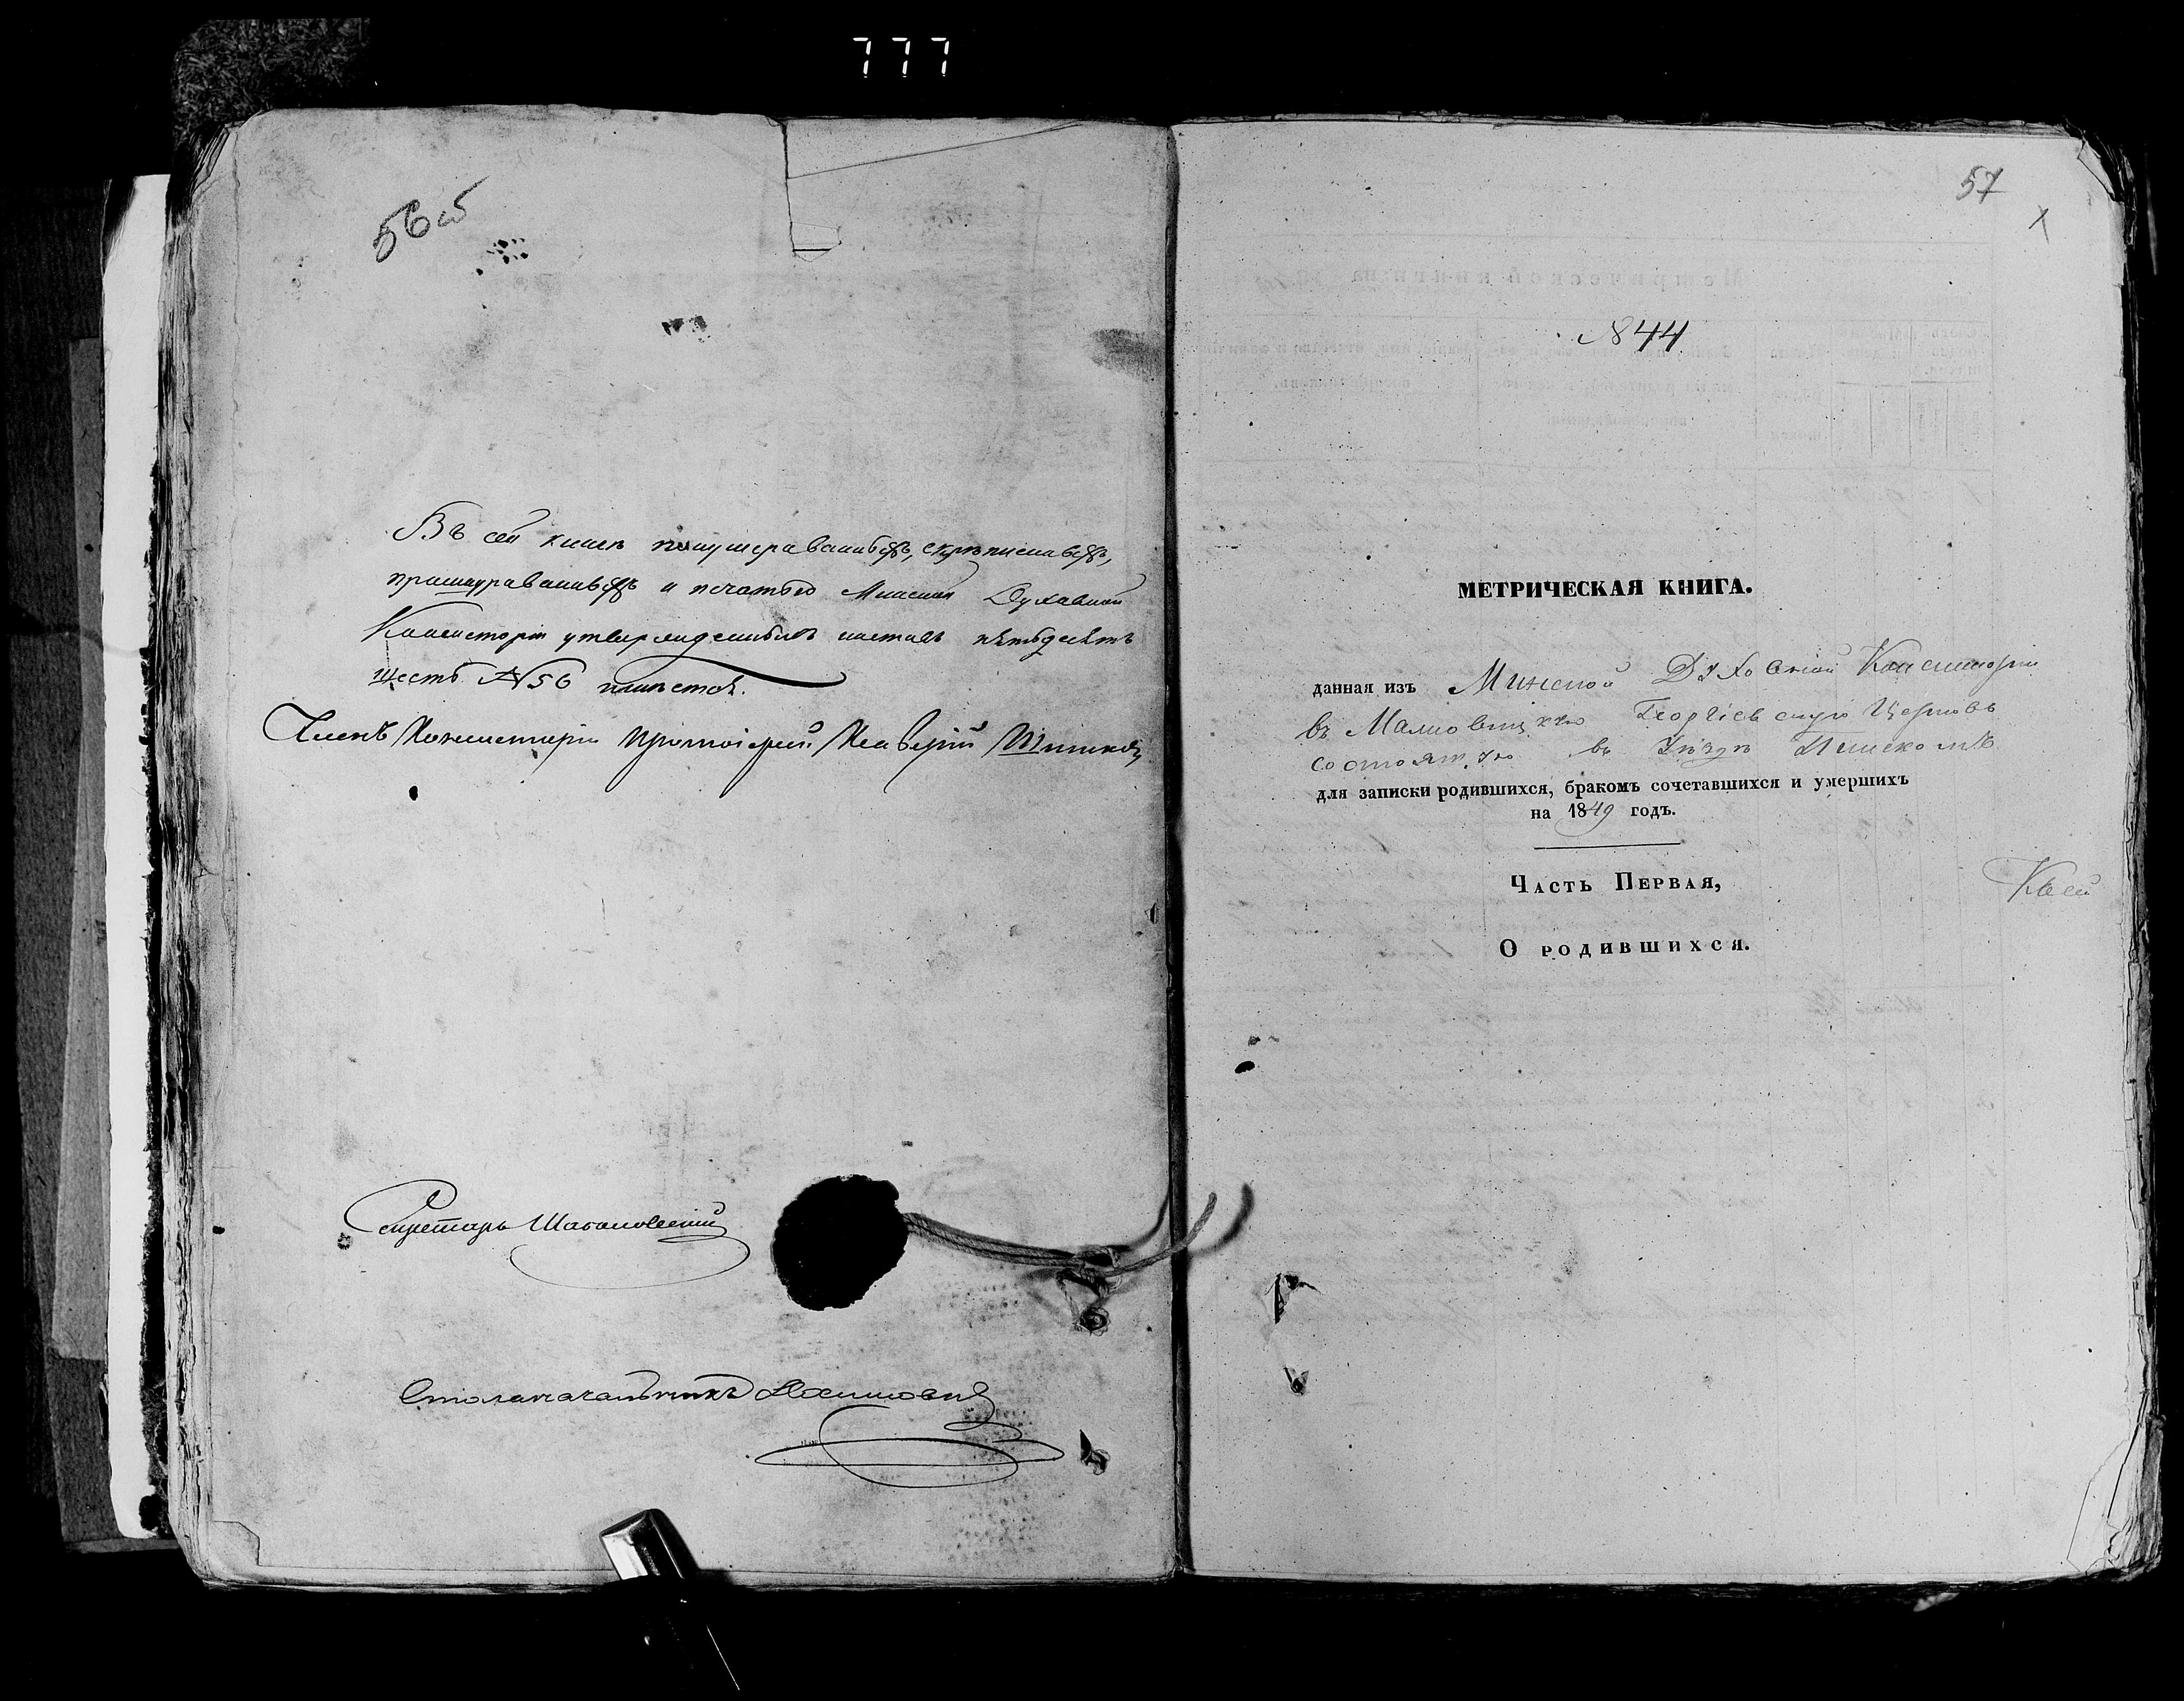 777
56 об
Въ сей книгѣ нумерованныхъ, скрѣпленныхъ,
прошнурованныхъ и печатью Минской Духовной
Консисторіи утвержденныхъ листовъ пятьдесятъ
шесть №56 имѣется.
Членъ Консисторіи Протоіерей
Секретарь
Столоначальникъ
57
№44
МЕТРИЧЕСКАЯ КНИГА.
данная изъ Минской Духовной Консисторіи
въ Георгіевскую Церковь
состоящую въ Уѣздѣ Пинскомъ
для записки родившихся, бракомъ сочетавшихся и умершихъ
на 1849 годъ.
Часть Первая,
О родившихся.
Къ сей